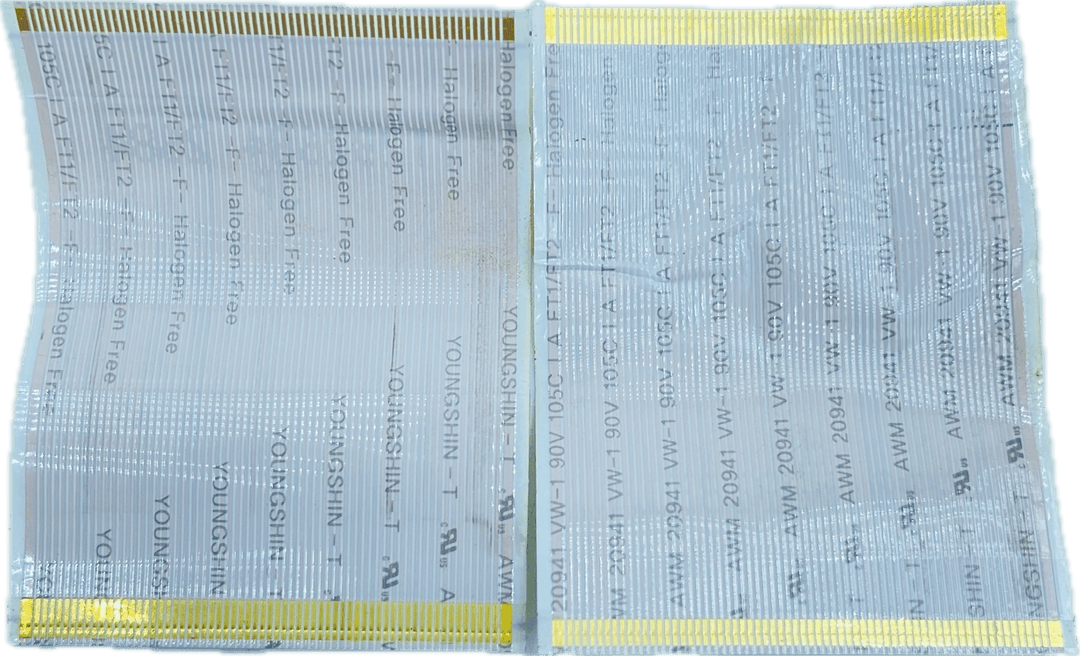 105C I A FT1/FT2 -F- Halogen Free
5C I A FT1/FT2 -F- Halogen Free YOUN
I A FT1/FT2 -F- Halogen Free YOUNGS
FT1/FT2 -F- Halogen Free YOUNGSHIN
1/FT2 -F- Halogen Free YOUNGSHIN - T
FT2 -F- Halogen Free YOUNGSHIN - T
-F- Halogen Free YOUNGSHIN - T
- Halogen Free YOUNGSHIN - T c RU us A
Halogen Free YOUNGSHIN - T c RU us AWM
20941 VW-1 90V 105C I A FT1/FT2 -F- Halogen Free
WM 20941 VW-1 90V 105C I A FT1/FT2 -F- Halogen
AWM 20941 VW-1 90V 105C I A FT1/FT2 -F- Halog
AWM 20941 VW-1 90V 105C I A FT1/FT2 -F- Hal
AWM 20941 VW-1 90V 105C I A FT1/FT2
AWM 20941 VW-1 90V 105C I A FT1/FT2 -
AWM 20941 VW-1 90V 105C I A FT1/F
T c RU us AWM 20941 VW-1 90V 105C I A FT1/
SHIN - T c RU us AWM 20941 VW-1 90V 105C I A
NGSHIN - T c RU us AWM 20941 VW-1 90V 105C I A